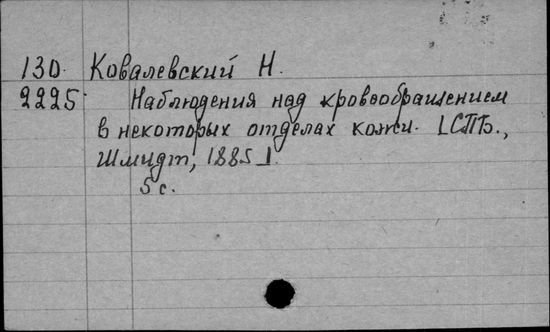 130. Ковалевский Н.
2225. Наблюдения над кровообращением
в некоторых отделах кожи. [СПБ.,
Шмидт, 1885].
5 с.